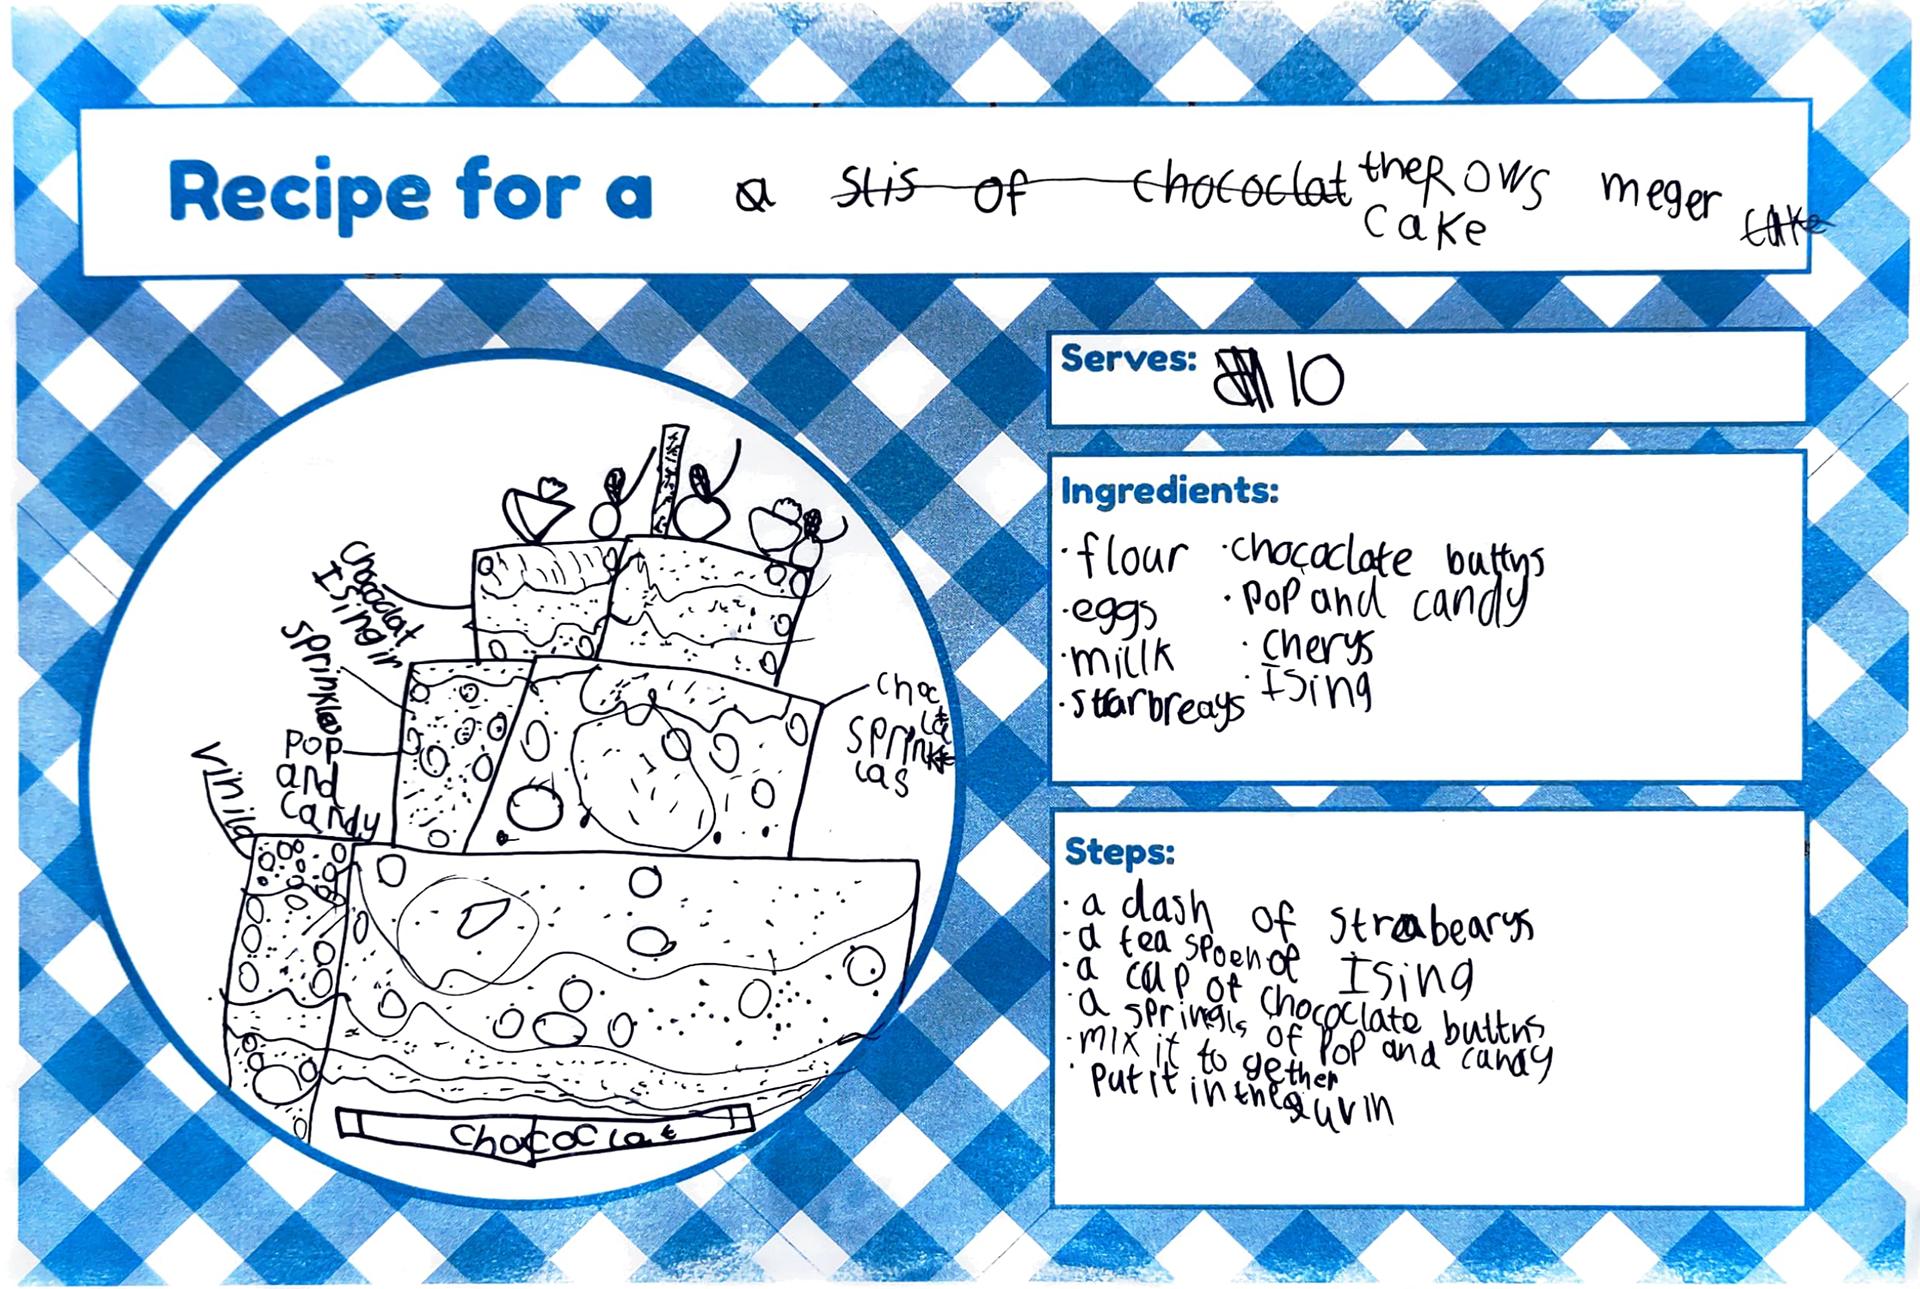 Recipe for a a stis of chococlat theROWS meger cake
cake
Serves: 10
Ingredients:
·flour ·chococlate buttys
·eggs ·pop and candy
·millk ·cherys
·starbreays ·Ising
Steps:
·a dash of strabearys
·a tea spoen of Ising
·a cup of chococlate buttns
·a springls of pop and candy
·mix it to gether
·put it in the uvin
chococlat
Ising in
sprinkles
pop
and
candy
vinila
choc
la
sprink
las
chococlat